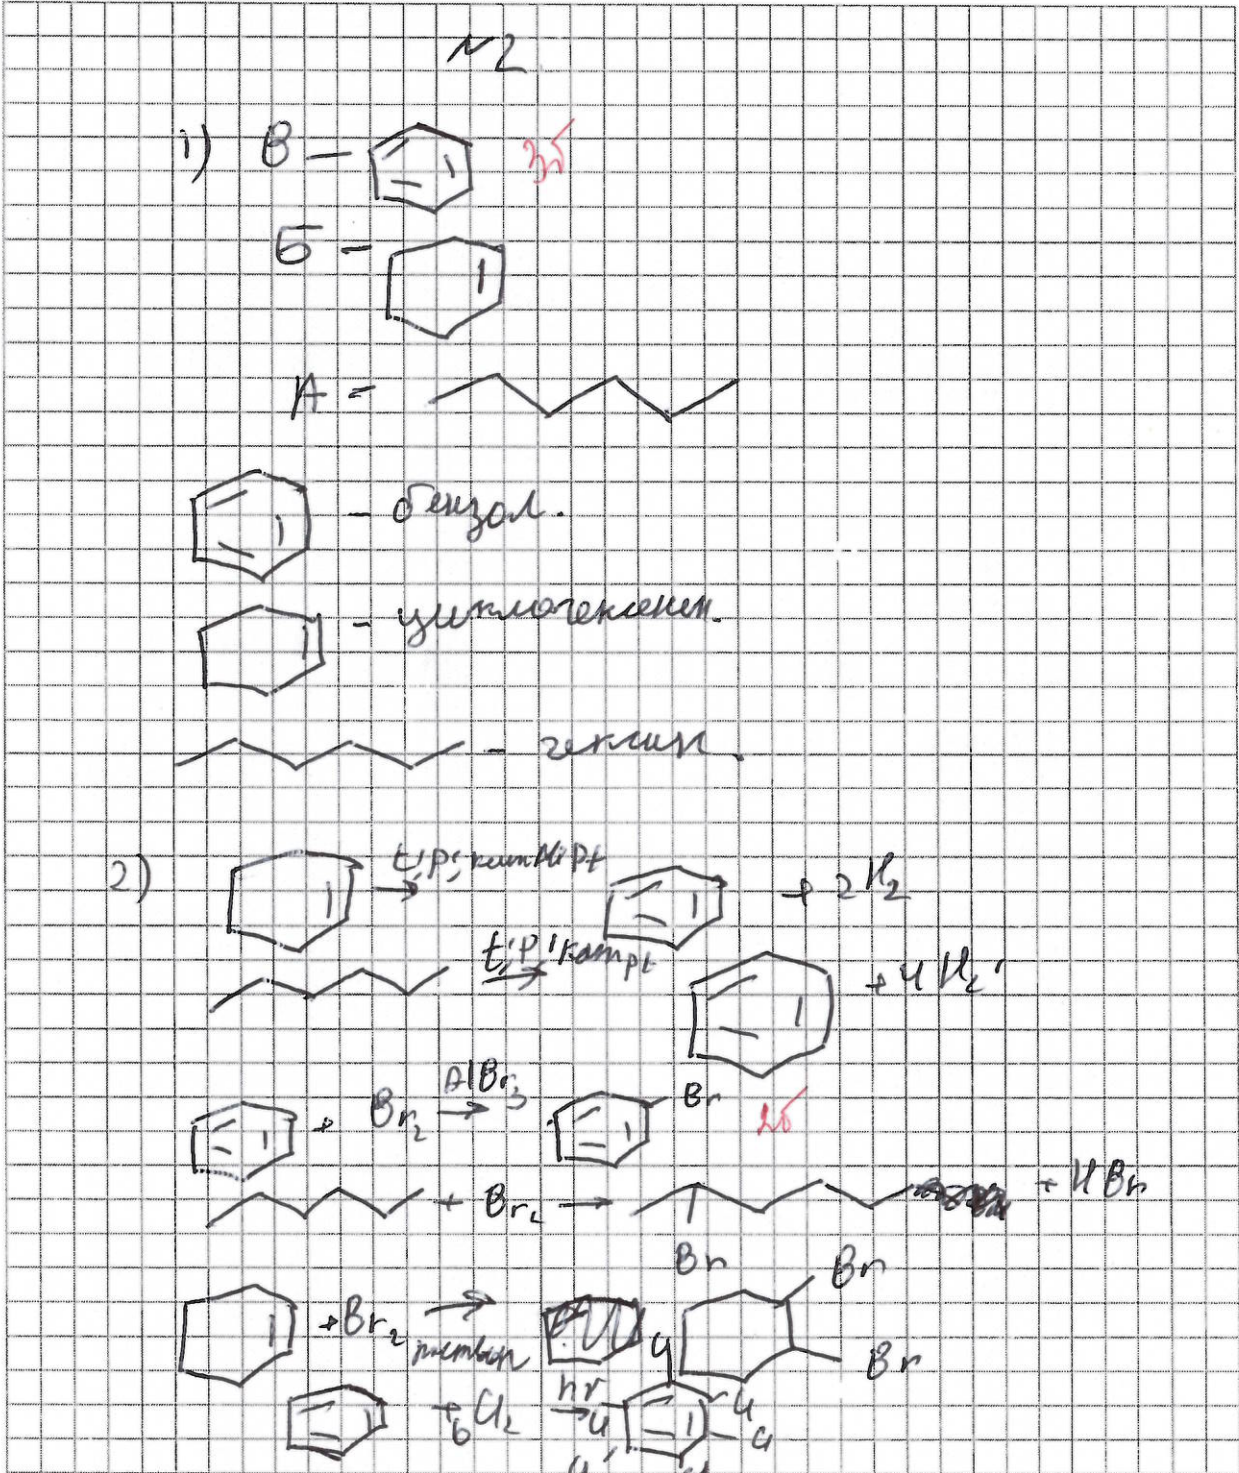 №2
1) В — 3б
Б —
А =
— бензол.
— циклогексен.
— гексан.
2) t; P; кат Ni Pt + 2H2
t; P; кат Pt + 4H2
+ Br2 AlBr3 → Br 2б
+ Br2 → Br + HBr
+ Br2 → раствор Br Br
+ 6Cl2 hν → Cl Cl Cl Cl Cl Cl